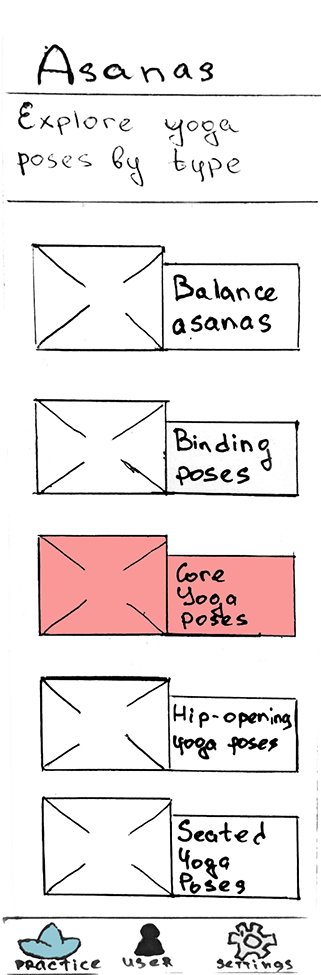 Asanas
Explore yoga
poses by type
Balance
asanas
Binding
poses
Core
Yoga
poses
Hip-opening
yoga poses
Seated
Yoga
Poses
PRACTICE
USER
SETTINGS